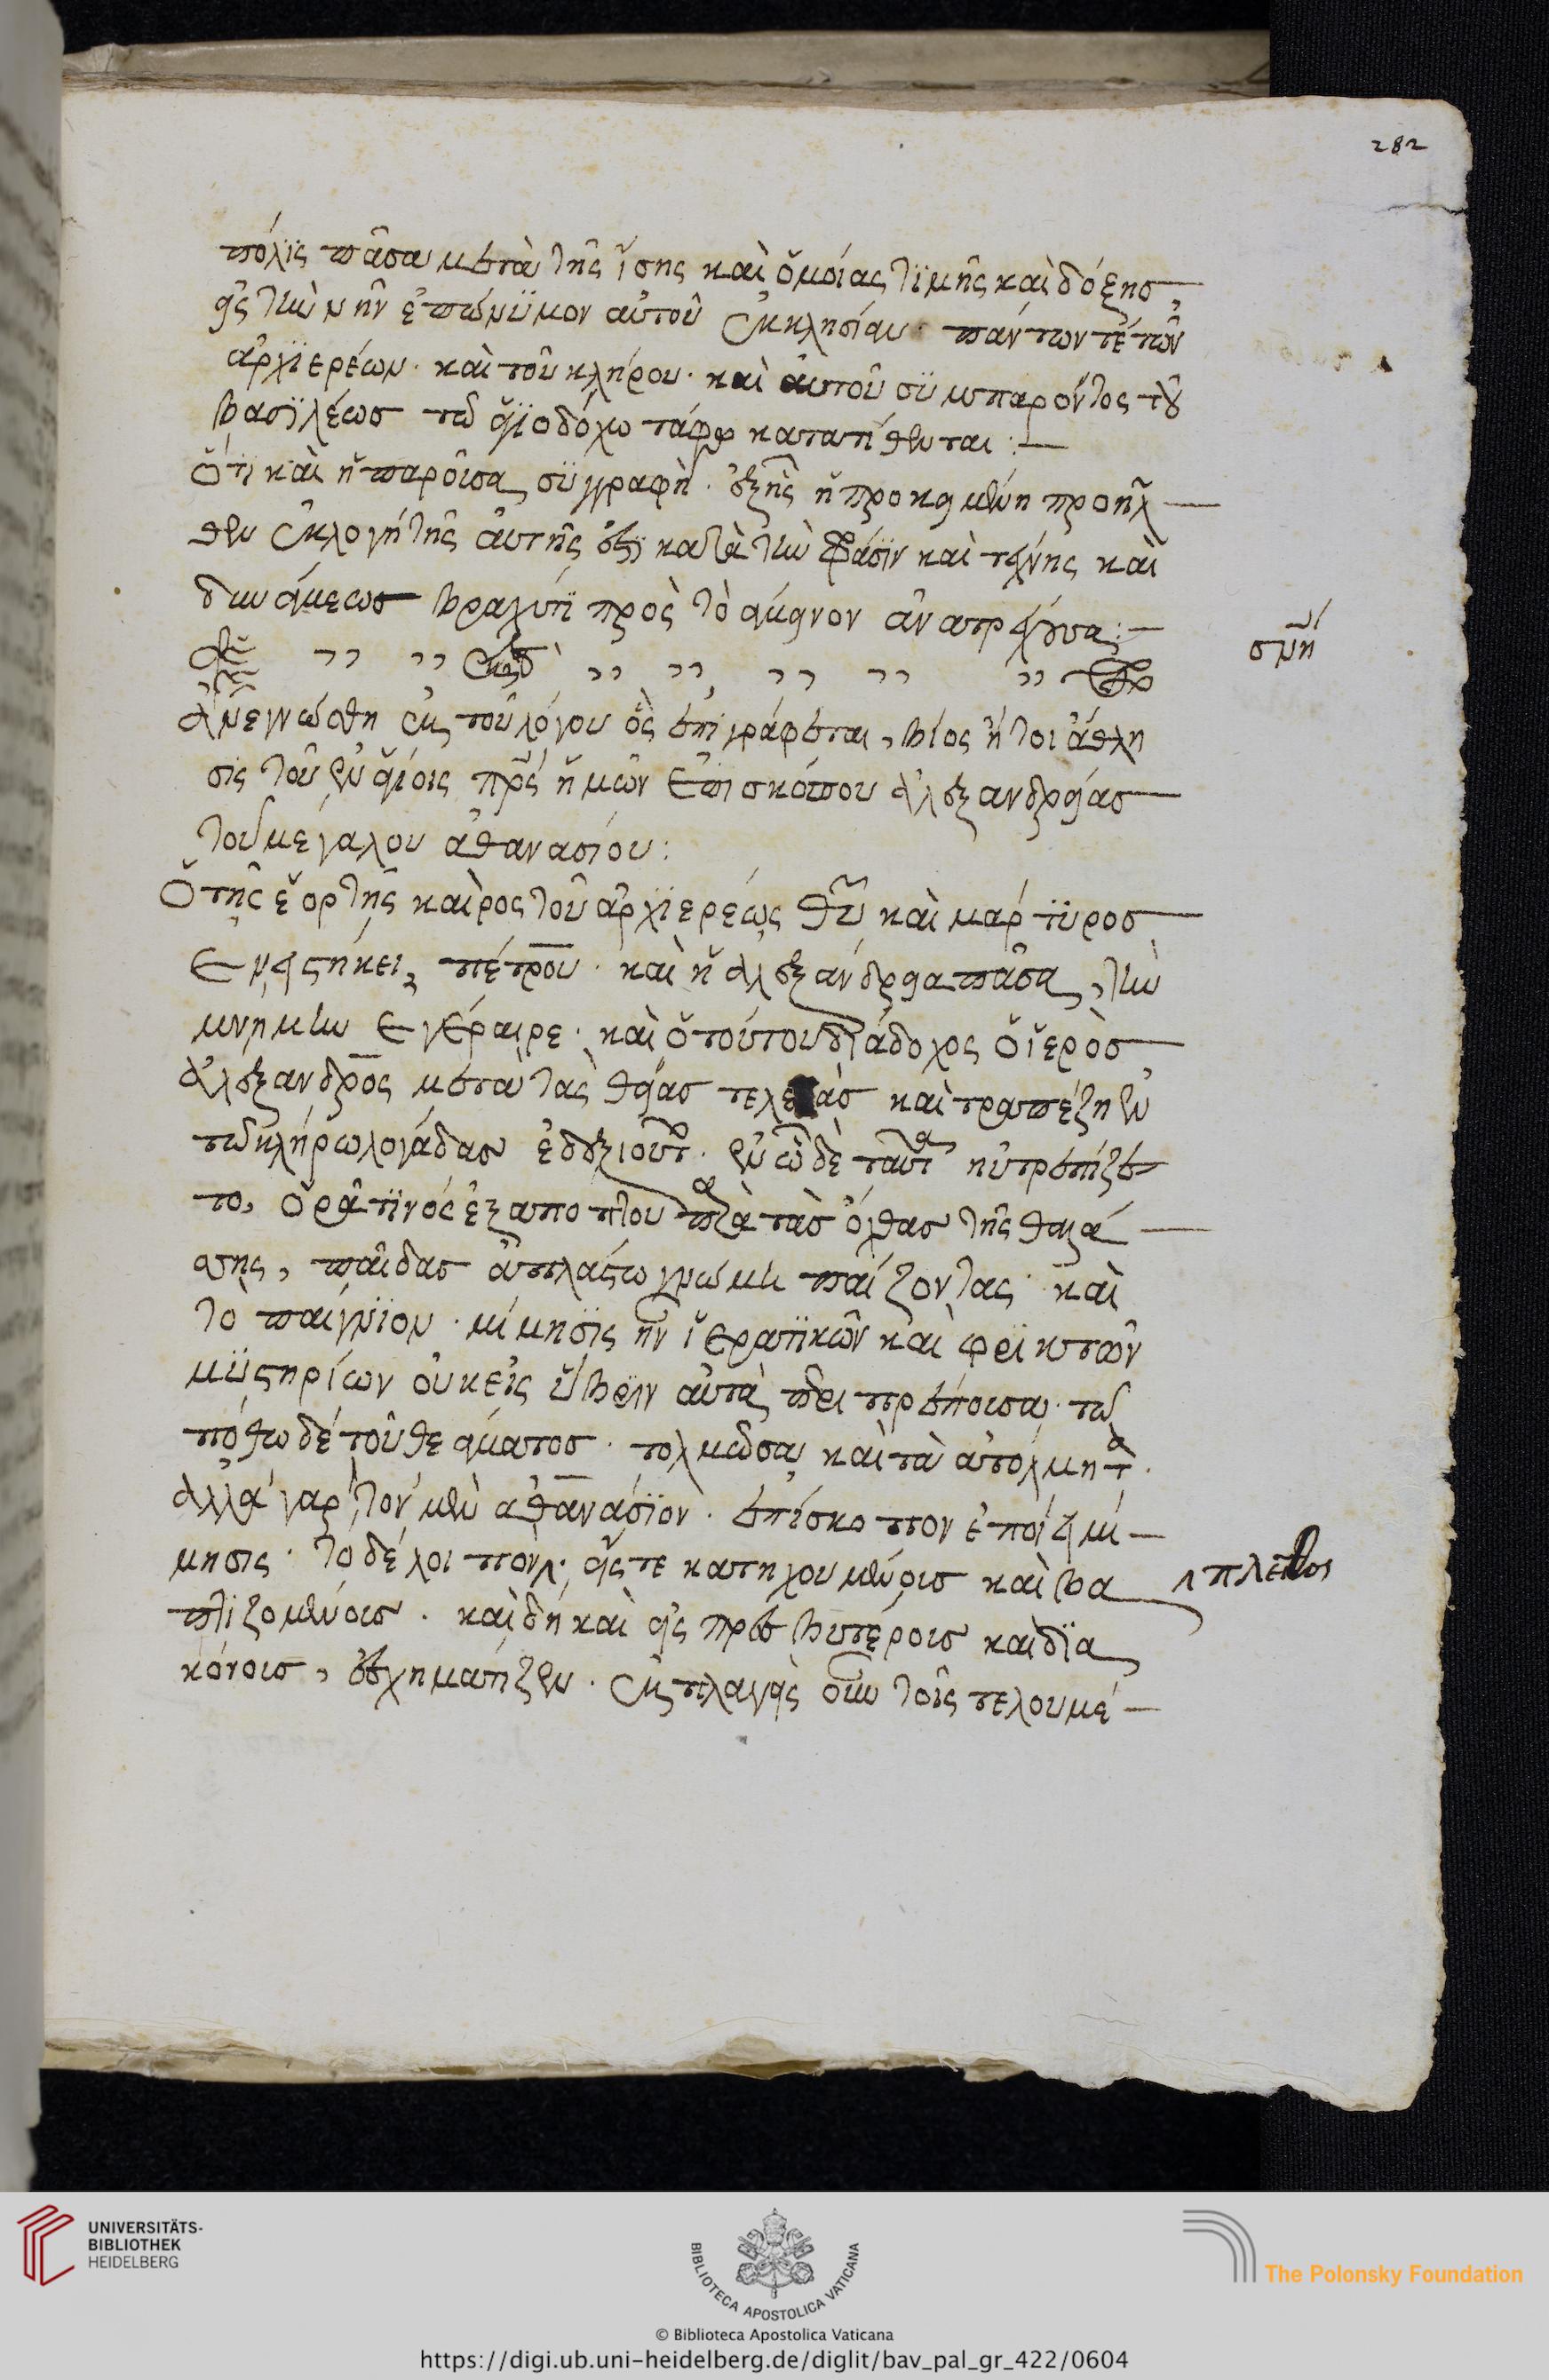 282
πόλϊς πᾶσα μετὰ τῆς ἴσης καὶ ὁμοίας τϊμῆς καὶ δόξησ,
εἰς τὴν νῦν ἐπώνϋμον αὐτοῦ ἐκκλησίαν· πάντων τέ τῶν
ἀρχϊερέων· καὶ τοῦ κλήρου· καὶ αὐτοῦ σϋμπαρόντος τοῦ
βασϊλέωσ τῷ ἁγϊοδόχω τάφω κατατίθεται :—
Ὅτϊ καὶ ἡ παροῦσα συγγραφὴ· ἐξ ἧς ἡ προκειμένη προῆλ
θεν ἐκλογή τῆς αὐτῆς ἐστϊ κατὰ τὴν φράσϊν καὶ τέχνης καὶ
δυνάμεωσ βραχύτϊ πρὸς τὸ ἄμεινον ἀνατρέχουσα :—
σνη
Ἀνεγνώσθη ἐκ τοῦ λόγου ὃς ἐπϊγράφεται, βίος ἤτοι ἄθλη
σϊς τοῦ ἐν ἁγίοις πρς ἡμῶν ἐπϊσκόπου ἀλεξανδρείασ
τοῦ μεγαλου ἀθανασίου :
Ὁ τῆς ἑορτῆς καιρος τοῦ ἀρχϊερέως θυ καὶ μαρτϋροσ
ἐνειστήκει, πέτρου· καὶ ἡ ἀλεξάνδρεια πᾶσα, τὴν
μνήμην ἐγέραιρε· καὶ ὁ τούτου δϊάδοχος ὁ ἱερὸσ
ἀλεξανδρος μετὰ τὰς θείασ τελετὰσ καὶ τραπέζη ἐν
τῶ κλήρω λογάδασ ἐδεξιοῦτο· ἐν ὧ δὲ ταῦτα ηὐτρεπίζε
το, ὁρᾶ τϊνός ἐξ αποπτου παρὰ τὰσ ὄχθασ τῆς θαλά
σσης, παῖδασ ἀπλάστω γνώμη παίζοντας· καὶ
τὸ παίγνϊον· μίμησϊς ἦν ἱερατϊκῶν καὶ φρϊκτῶν
μϋστηρίων οὐκ εἰς ὕβρϊν αὐτὰ περιτρέπουσα· τῶ
πόθω δέ τοῦ θεάματοσ· τολμῶσα καὶ τὰ ἀτόλμητα.
ἀλλά γαρ τον μὲν ἀθανάσϊον· ἐπίσκοπον ἐποίει μί
μησις· το δέ λοιπὸν· εἴς τε κατηχουμένοισ καὶ βα
πλεῖστον
πτϊζομένοισ· καὶ δὴ καὶ εἰς πρεσβυτέροισ καὶ δϊα
κόνοισ, ἐσχημάτϊζεν· ἐκπλαγεὶς οὖν τοῖς τελουμέ
UNIVERSITÄTS-
BIBLIOTHEK
HEIDELBERG
BIBLIOTECA APOSTOLICA VATICANA
The Polonsky Foundation
© Biblioteca Apostolica Vaticana
https://digi.ub.uni-heidelberg.de/diglit/bav_pal_gr_422/0604